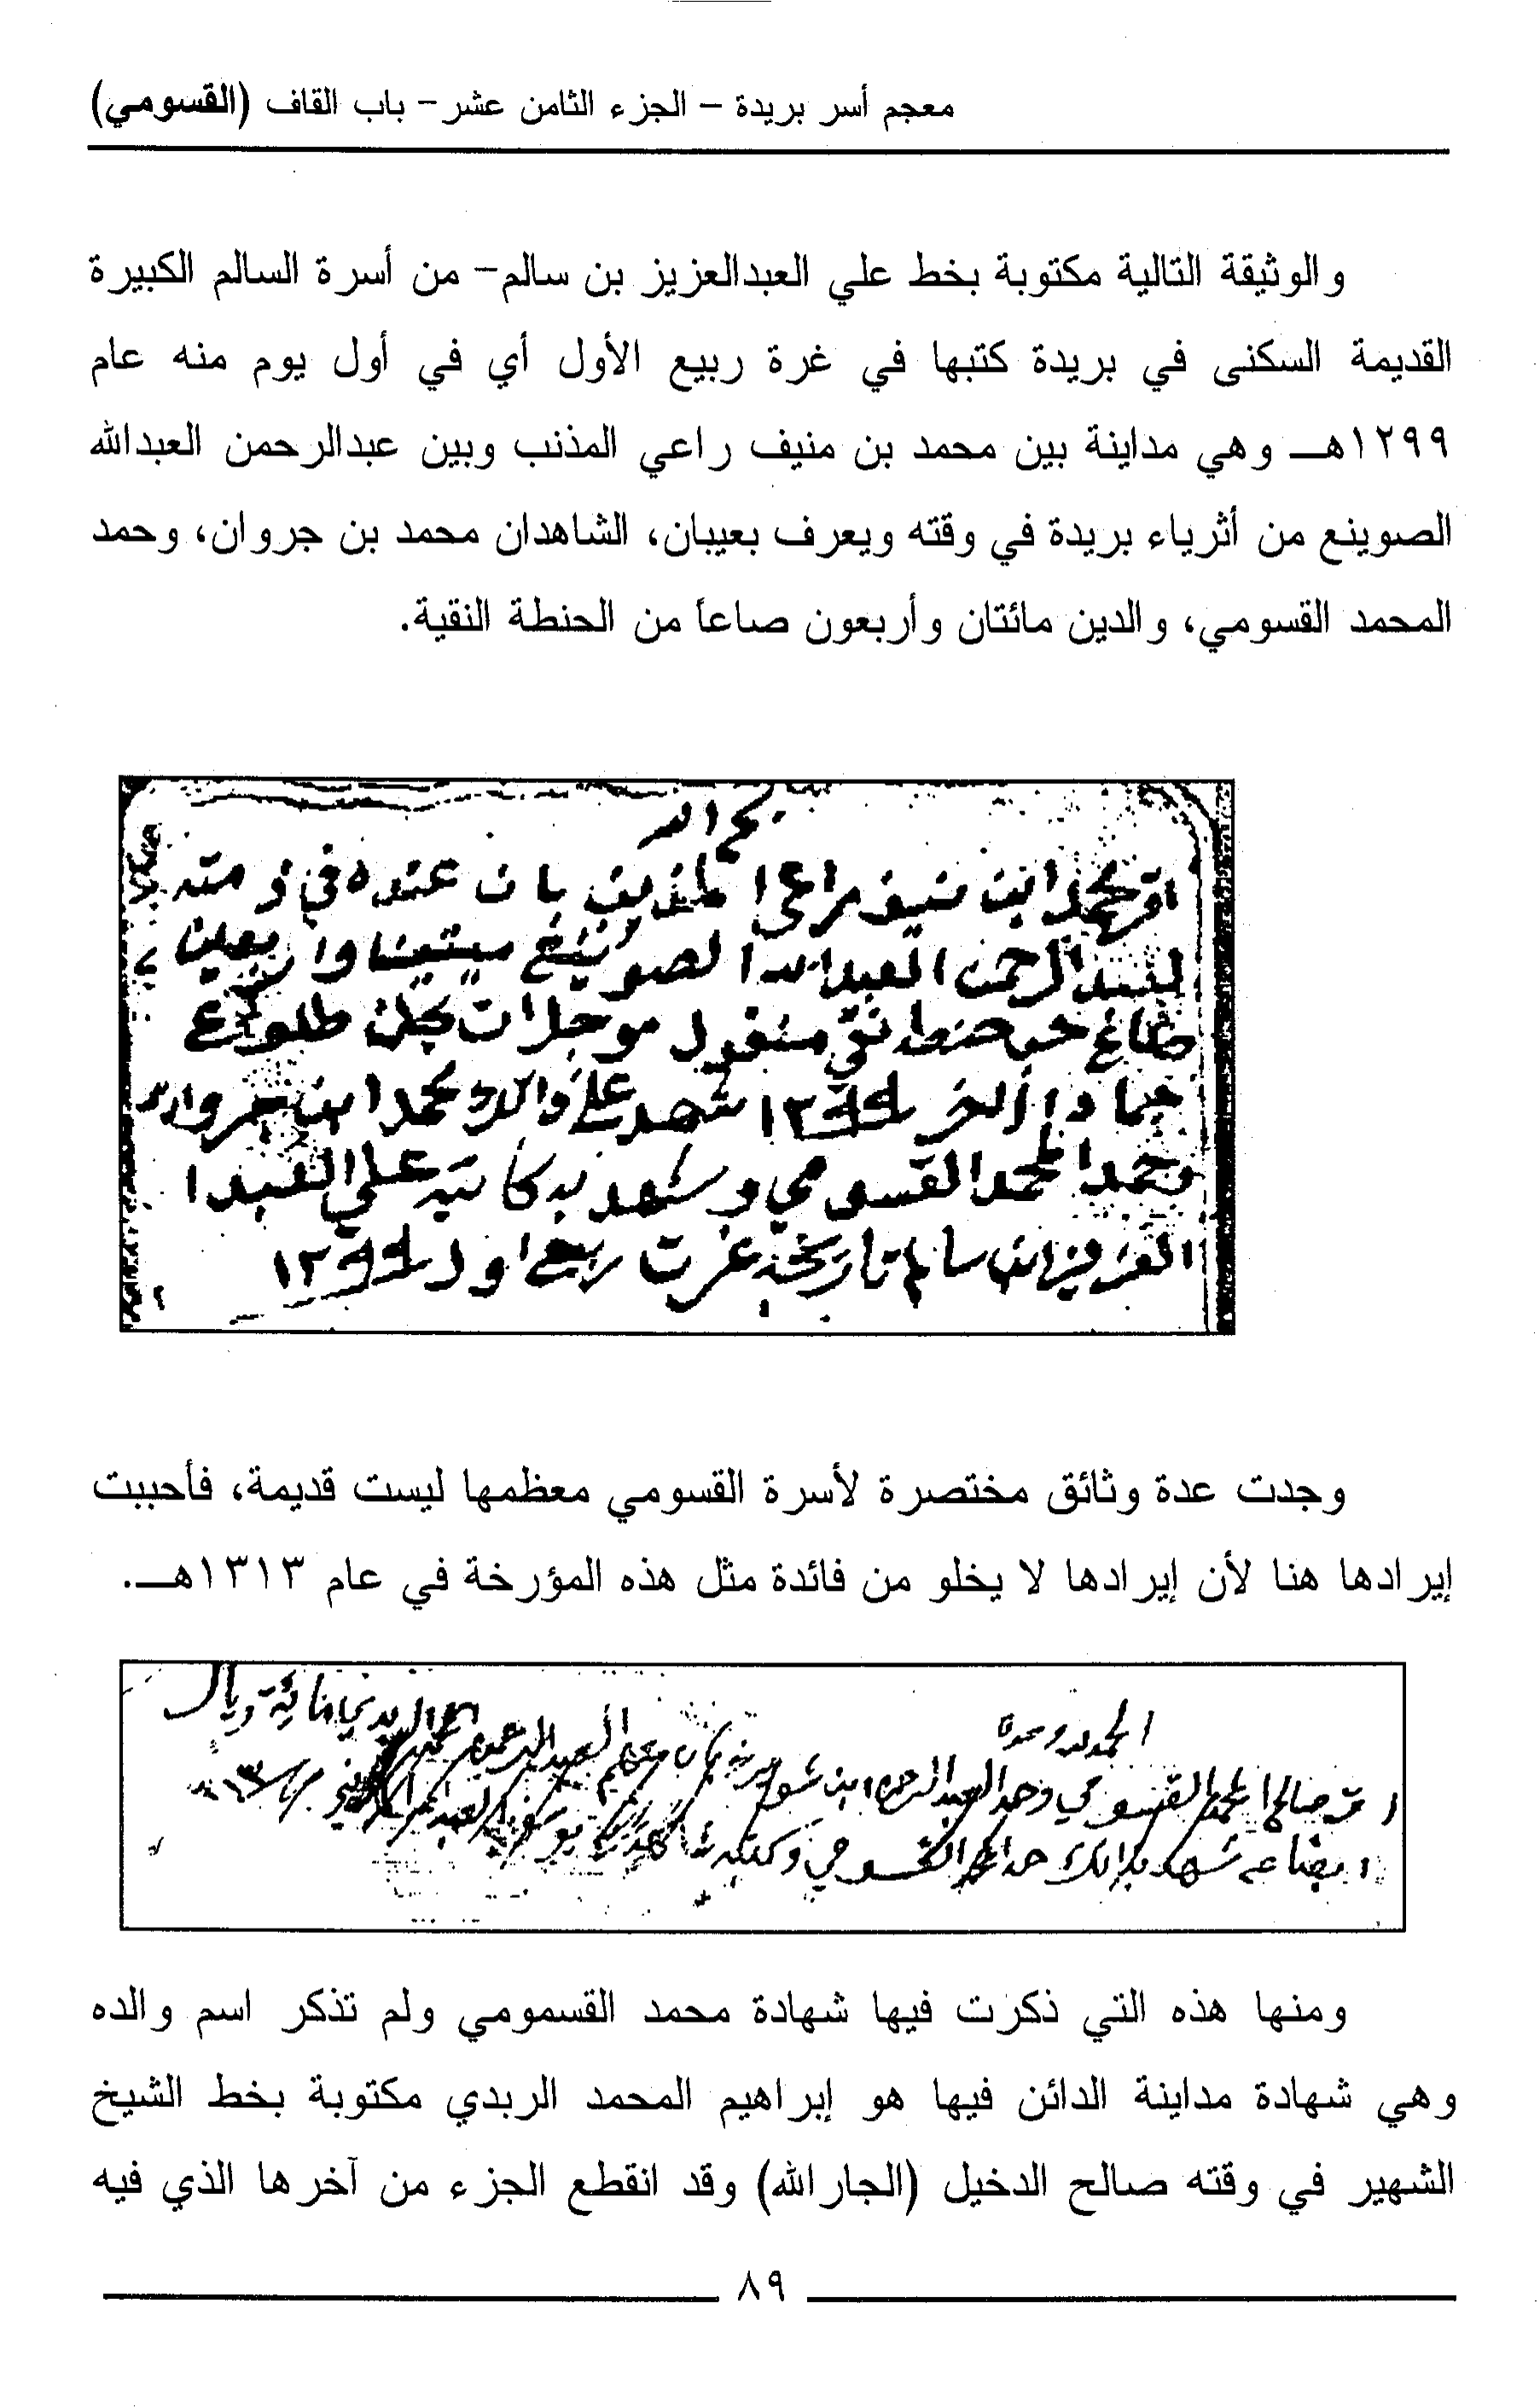 معجم أسر بريدة – الجزء الثامن عشر – باب القاف (القسومي)
والوثيقة التالية مكتوبة بخط علي العبدالعزيز بن سالم– من أسرة السالم الكبيرة
القديمة السكنى في بريدة كتبها في غرة ربيع الأول أي في أول يوم منه عام
١٢٩٩هـ وهي مداينة بين محمد بن منيف راعي المذنب وبين عبدالرحمن العبدالله
الصوينع من أثرياء بريدة في وقته ويعرف بعيبان، الشاهدان محمد بن جروان، وحمد
المحمد القسومي، والدين مائتان وأربعون صاعاً من الحنطة النقية.
اقر محمد ابن منيف راعي المذنب بان عنده في ذمته
لعبدالرحمن العبدالله الصوينع ميتين واربعين
صاع حب حنطه نقي منقول موجلات يحلن طلوع
جماد الاخر ١٢٩٩ شهد على ذالك محمد ابن جروان
وحمد المحمد القسومي وشهد به كاتبه علي العبدا
العزيز ابن سالم تاريخه غرت ربيع اول ١٢٩٩
وجدت عدة وثائق مختصرة لأسرة القسومي معظمها ليست قديمة، فأحببت
إيرادها هنا لأن إيرادها لا يخلو من فائدة مثل هذه المؤرخة في عام ١٣١٣هـ.
الحمد لله وحده
اقر صالح المحمد القسومي وحمد العبدالرحمن ابن
شهد بذالك حمد المحمد القسومي وكتبه
ومنها هذه التي ذكرت فيها شهادة محمد القسمومي ولم تذكر اسم والده
وهي شهادة مداينة الدائن فيها هو إبراهيم المحمد الربدي مكتوبة بخط الشيخ
الشهير في وقته صالح الدخيل (الجارالله) وقد انقطع الجزء من آخرها الذي فيه
٨٩